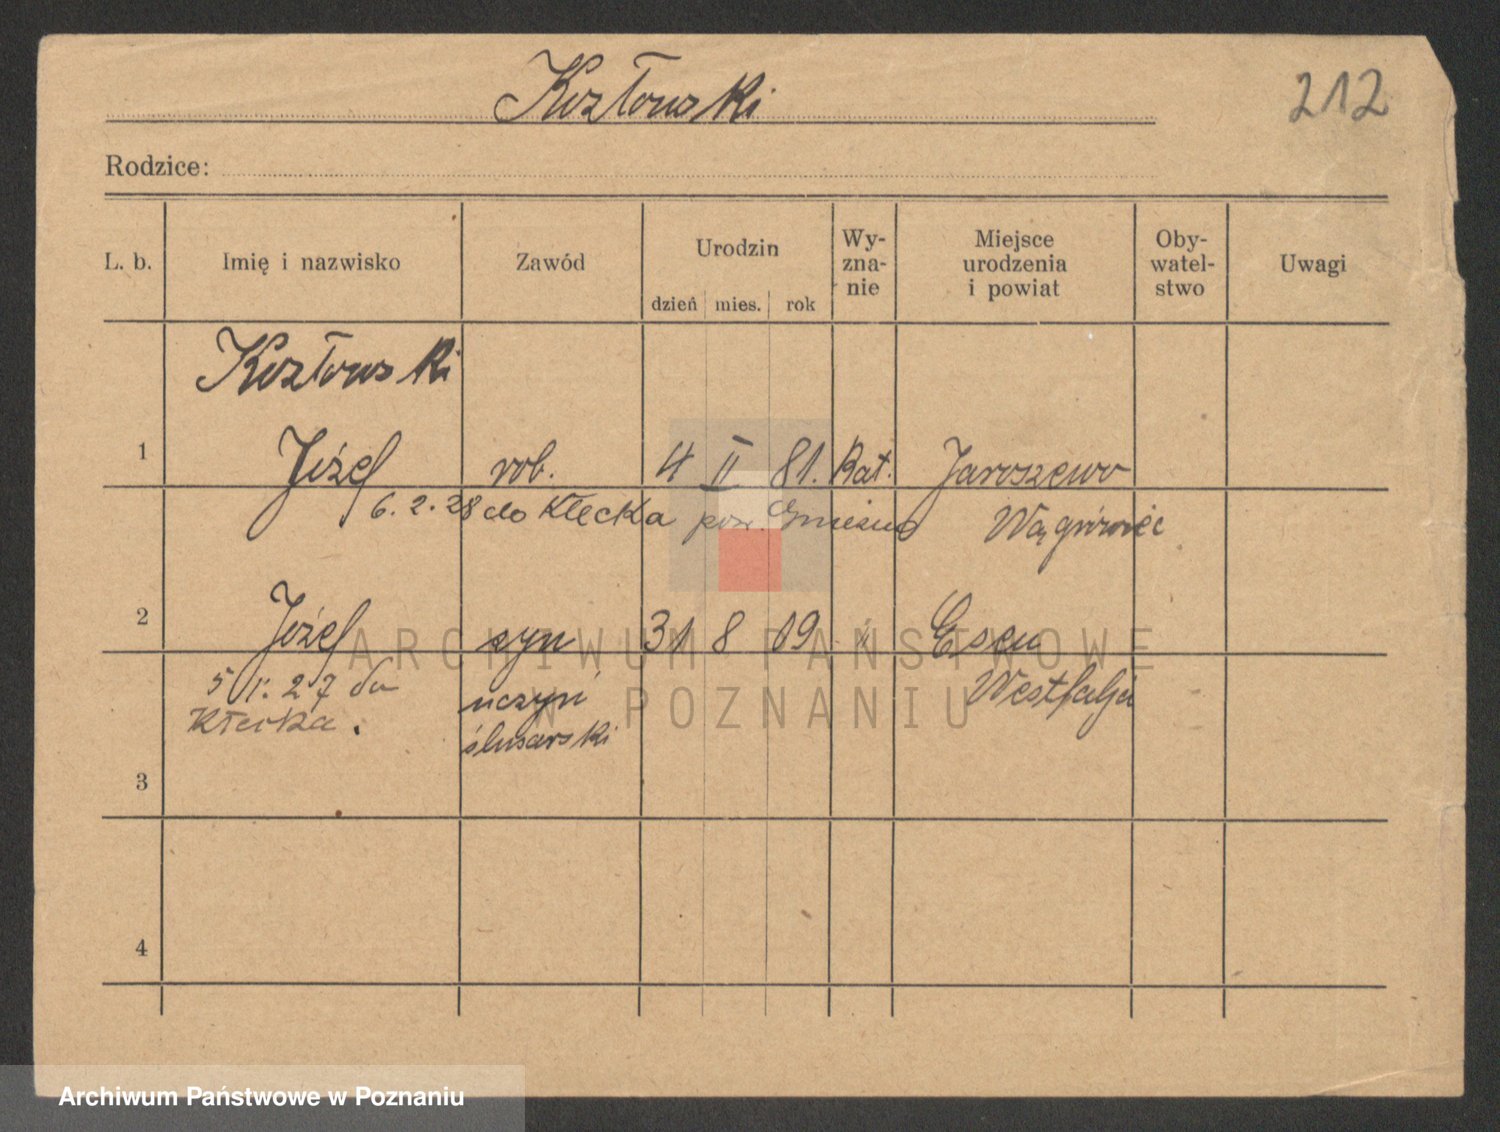 Kozłowski
212
Rodzice:
L. b. Imię i nazwisko Zawód Urodzin dzień mies. rok Wy-zna-nie Miejsce urodzenia i powiat Oby-watel-stwo Uwagi
Kozłowski
1 Józef rob. 4 II 81. Kat. Jaroszewo
6. 2. 28 do Kłecka pow. Gniezno Wągrówiec
2 Józef syn 31 8 09 " Esen
5 1. 27 do uczyń Westfalja
Kłecka. ślusarski
3
4
ARCHIWUM PAŃSTWOWE
W POZNANIU
Archiwum Państwowe w Poznaniu